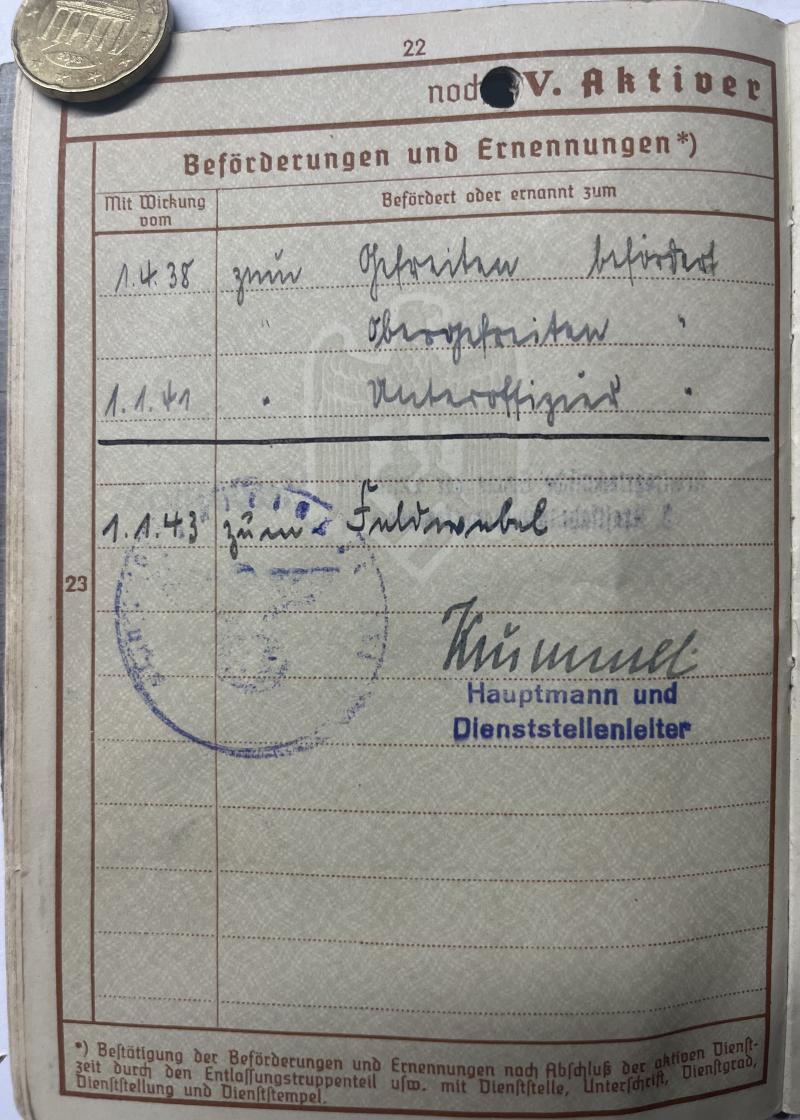 22
noch V. Aktiver
Beförderungen und Ernennungen*)
Mit Wirkung vom
Befördert oder ernannt zum
1.4.38 zum Gefreiten befördert
" Obergefreiten "
1.1.41 " Unteroffizier "
1.1.43 zum Feldwebel
23
Kümmel
Hauptmann und
Dienststellenleiter
*) Bestätigung der Beförderungen und Ernennungen nach Abschluß der aktiven Dienst-
zeit durch den Entlassungstruppenteil usw. mit Dienststelle, Unterschrift, Dienstgrad,
Dienststellung und Dienststempel.